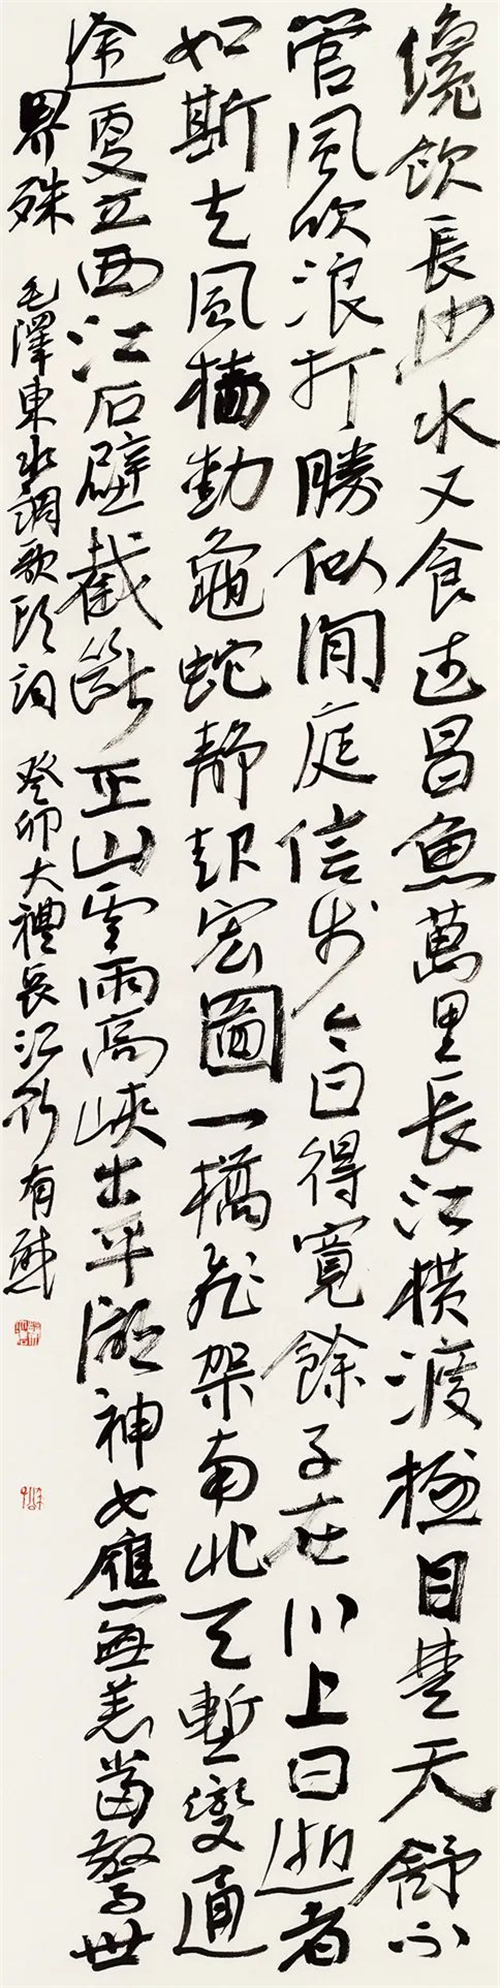 纔飲長沙水又食武昌魚萬里長江橫渡極目楚天舒不
管風吹浪打勝似閒庭信步今日得寬餘子在川上曰逝者
如斯夫風檣動龜蛇靜起宏圖一橋飛架南北天塹變通
途更立西江石壁截斷巫山雲雨高峽出平湖神女應無恙當驚世
界殊 毛澤東水調歌頭詞 癸卯大禮長江